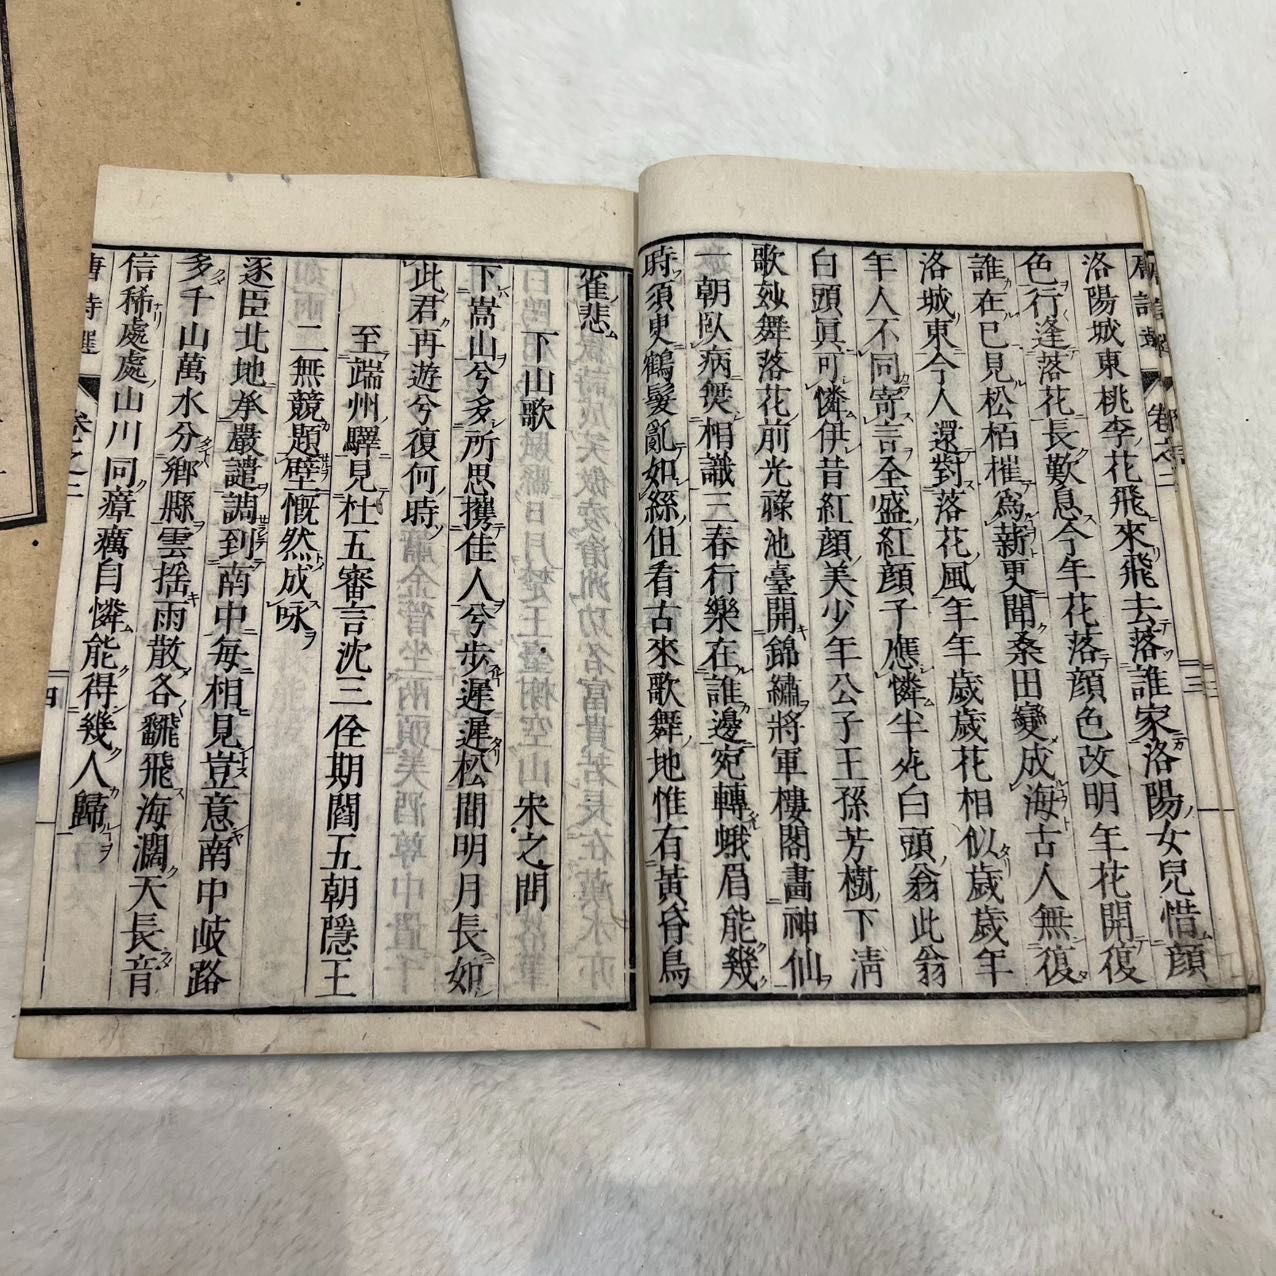 洛陽城東桃李花飛來飛去落誰家洛陽女兒惜顔
色行逢落花長歎息今年花落顔色改明年花開復
誰在已見松栢摧爲薪更聞桑田變成海古人無復
洛城東今人還對落花風年年歲歲花相似歲歲年
年人不同寄言全盛紅顔子應憐半死白頭翁此翁
白頭眞可憐伊昔紅顔美少年公子王孫芳樹下清
歌妙舞落花前光祿池臺開錦繡將軍樓閣畫神仙
一朝臥病無相識三春行樂在誰邊宛轉蛾眉能幾
時須臾鶴髮亂如絲但看古來歌舞地惟有黃昏鳥
雀悲
下山歌 宋之問
下嵩山兮多所思攜佳人兮步遲遲松間明月長如
此君再遊兮復何時
至端州驛見杜五審言沈三佺期閻五朝隱王
二無競題壁慨然成咏
逐臣北地承嚴譴調到南中每相見豈意南中岐路
多千山萬水分鄉縣雲搖雨散各飜飛海濶天長音
信稀處處山川同瘴癘自憐能得幾人歸
唐詩選 卷之二 四